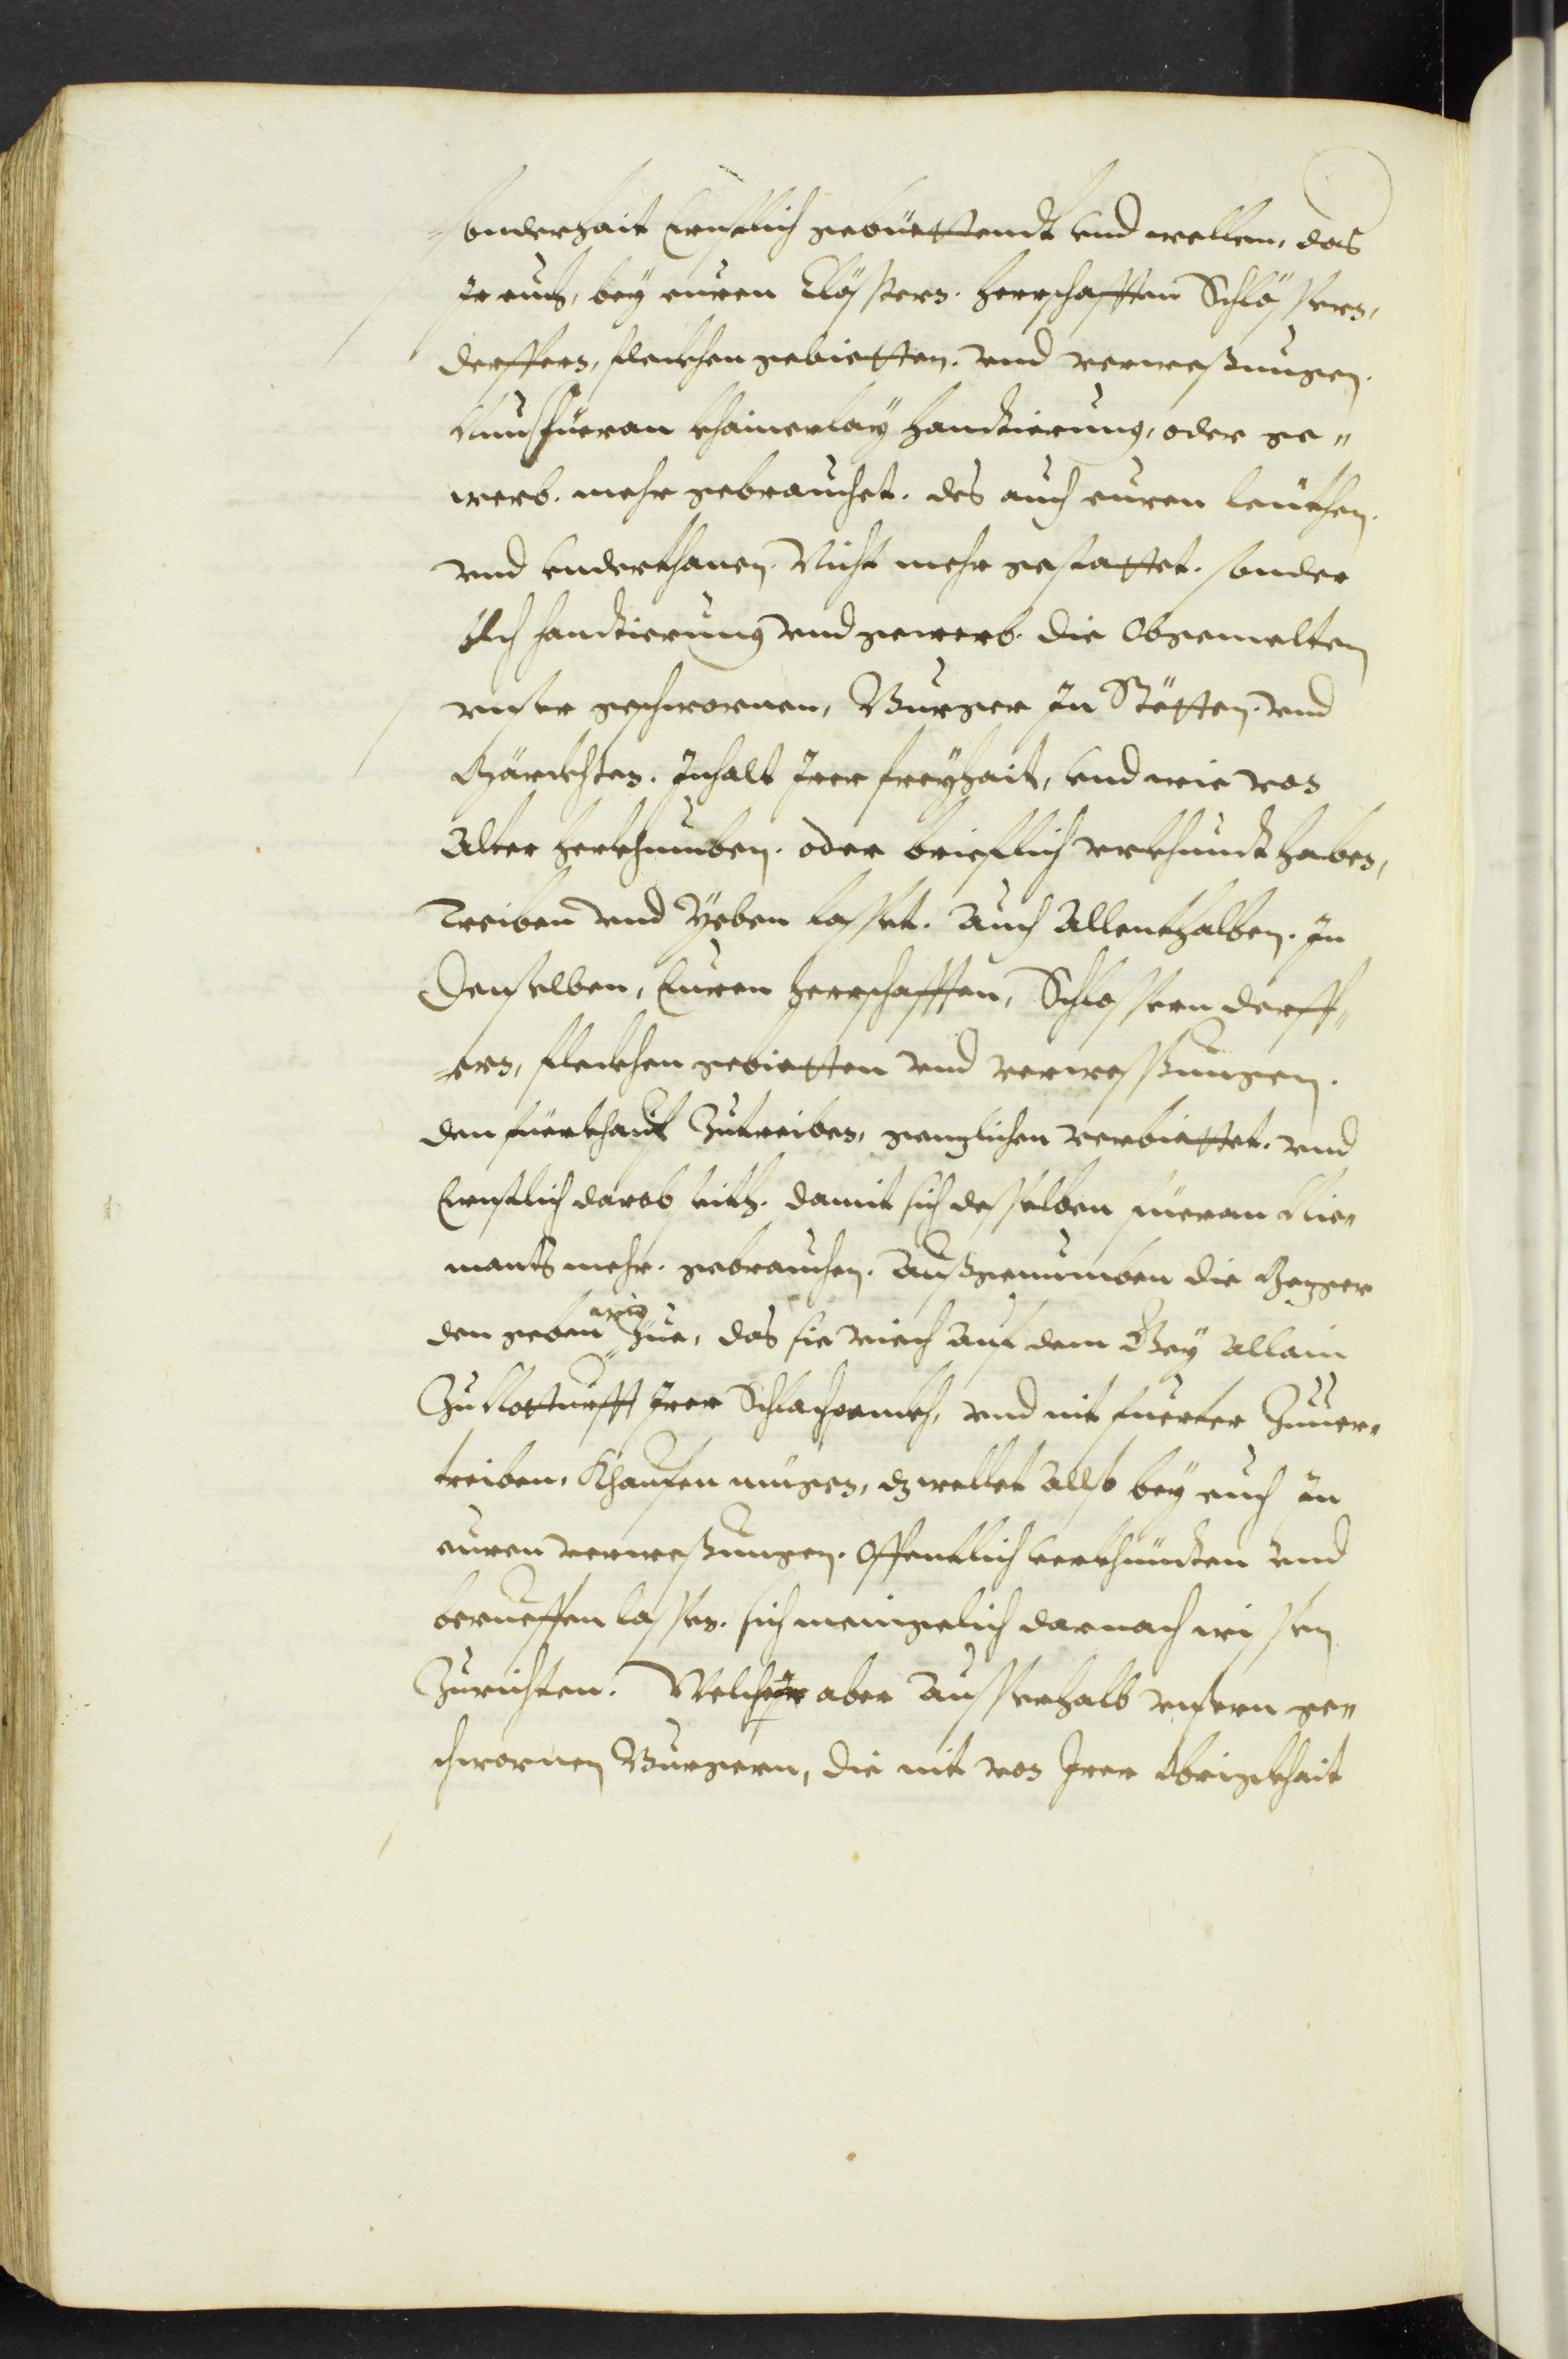 sonderhait Ernstlich gebüettendt vnd wellen, das
Ir euch, bey euren Clösstern. herrschafften Schlössern,
derffern, fleckhen gebietten. vnd verwesßungen.
Nun füeran khainerlay handtierung, oder ge„
werb. mehr gebrauchet. des auch euren leuthen.
vnd vnderthanen. Nicht mehr gestattet. sonder
sölch handtierung vnd gewerb. die Obgemelten
vnser geschwornen, Burger In Stötten. vnd
Märckhten. Inhalt Irer freyhait, vnd wie von
Alter herkhumben. oder brieflich vrkhundt haben,
Treiben vnd Yeben lasset. Auch Allenthalben. In
Denselben, Euren herrschafften, Schlossern derff„
ern, fleckhen gebietten vnd verwesßungen.
den fuerkhauf Zutreiben, genzlichen verbiettet. vnd
Ernstlich darob seith. damit sich desselben füeran Nie„
mants mehr. gebrauchen. Außgenumben die Mezger
den geben wir Zue, das sie viech auf dem Gey allain
Zu Notturfft Irer Schlachpenckh, vnd nit fuerter Zuuer„
treiben, Khaufen mügen, dz wellet allso bey euch In
euren verwesßungen. Offentlich verkhündten vnd
berueffen lassen. sich menigelich darnach wissen
Zurichten. Welcher aber Ausserhalb vnsern ge„
schwornen Burgern, die nit von Irer Obrigkhait